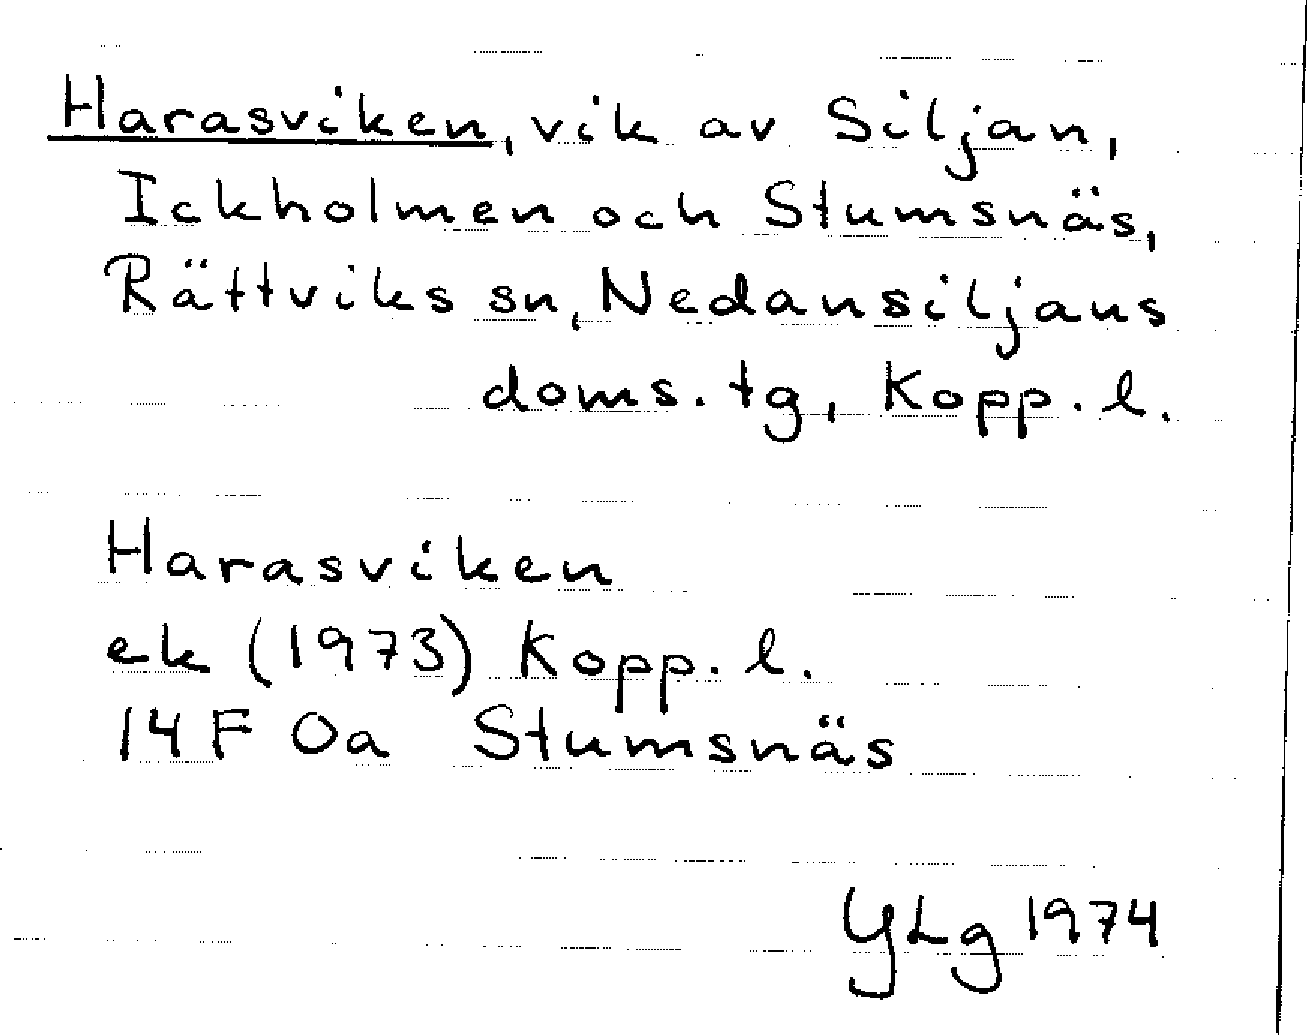 Harasviken, vik av Siljan,
Ickholmen och Stumsnäs,
Rättviks sn, Nedansiljans
doms. tg, Kopp. l.
Harasviken
ek (1973) Kopp. l.
14 F 0a Stumsnäs
YLg 1974